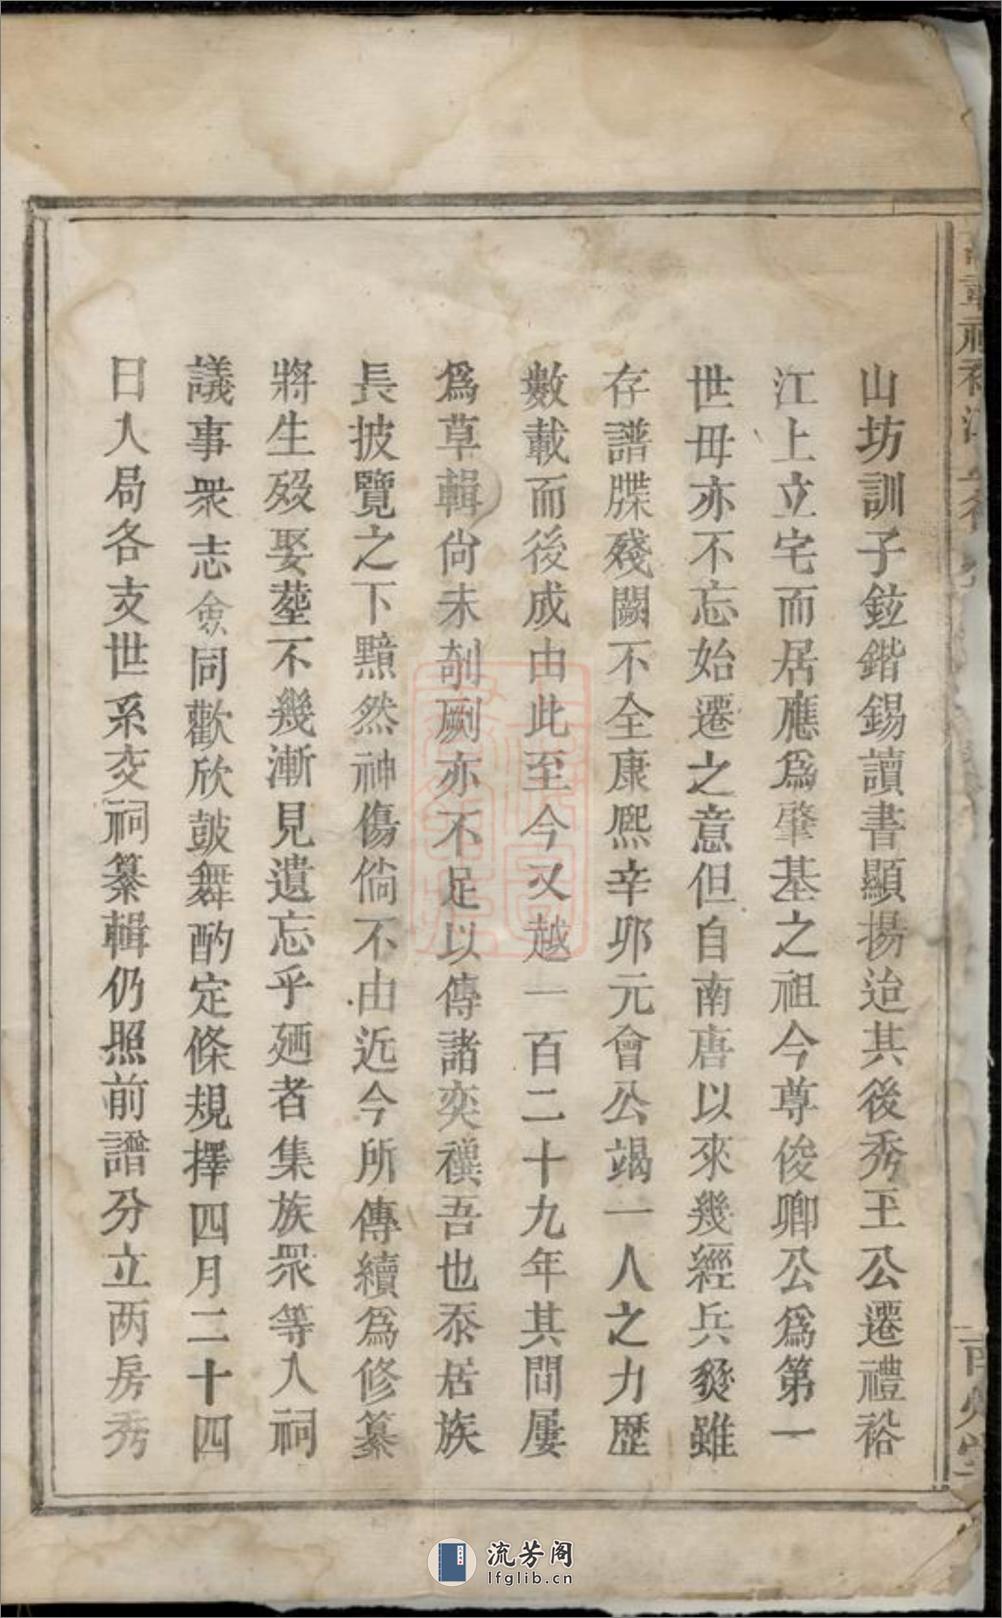 山坊訓子鉉鍇錫讀書顯揚迨其後秀王公遷禮裕
江上立宅而居應爲肇基之祖今尊俊卿公爲第一
世毋亦不忘始遷之意但自南唐以來幾經兵燹雖
存譜牒殘闕不全康熙辛卯元會公竭一人之力歷
數載而後成由此至今又越一百二十九年其間屢
爲草輯尙未剞劂亦不足以傳諸奕禩吾也忝居族
長披覽之下黯然神傷倘不由近今所傳續爲修纂
將生殁娶塟不幾漸見遺忘乎廼者集族衆等入祠
議事衆志僉同歡欣鼓舞酌定條規擇四月二十四
日入局各支世系交祠纂輯仍照前譜分立两房秀
流芳阁
lfglib.cn